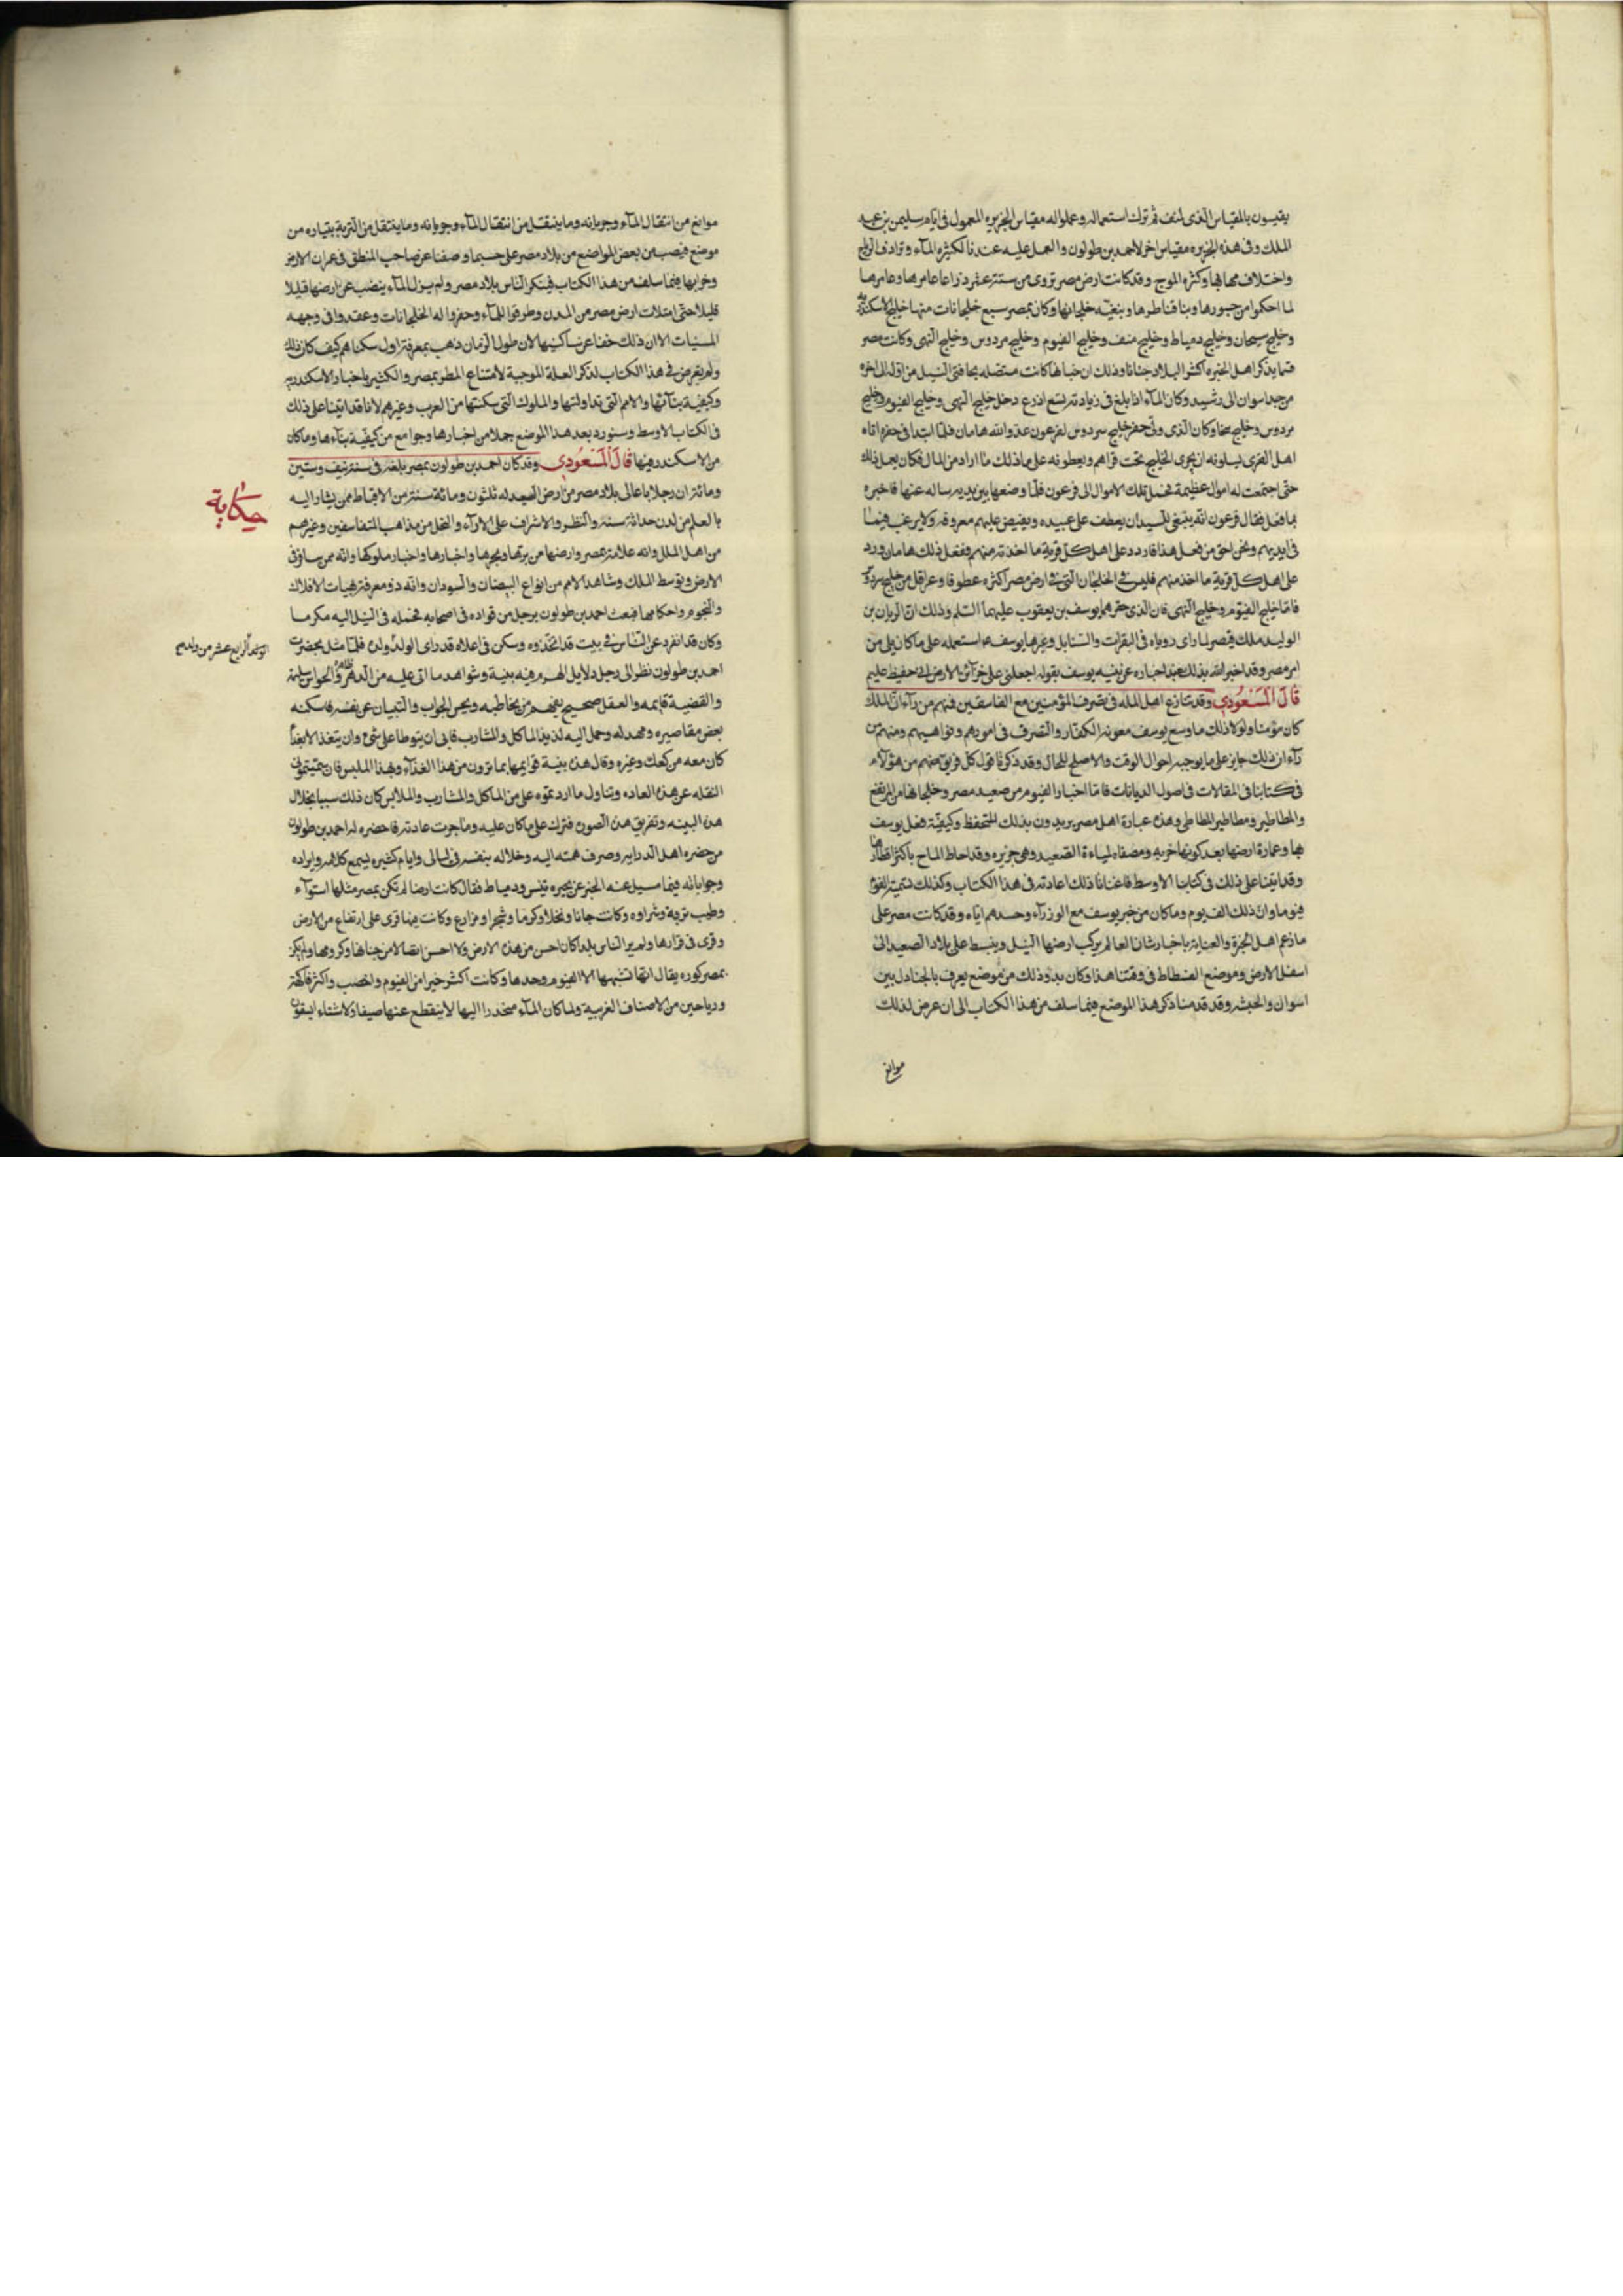 يقيسون بالمقياس الذى انف ثم ترك استعماله وعملوا له مقياس الجزيره المعمول فى ايام سليمن بن عبد
الملك وفى هذه الجزيره مقياس اخر لاحمد بن طولون والعمل عليه عندنا لكثيره المآء وترادف الرياح
واختلاف مهابها وكثره الموج وقد كانت ارض مصر تروى من ستة عشر ذراعا عامرها وعامرها
لما احكموا من جسورها وبنا قناطرها وبنقيه خلجانها وكان بمصر سبع خلجانات منها خليج الاسكندريه
وخليج سبحان وخليج دمياط وخليج منف وخليج الفيوم وخليج مردوس وخليج النهى وكانت مصر
فيما يذكر اهل الخبره اكثر البلاد جنانا وذلك ان جنانها كانت متصله بحافتى النيل من اوله الى اخره
من حد اسوان الى رشيد وكان المآء اذا بلغ فى زيادته تسع اذرع دخل خليج النهى وخليج الفيوم وخليج
مردوس وخليج سخا وكان الذى ولى حفر خليج سردوس لفرعون عدو الله هامان فلما ابتدا فى حفره اتاه
اهل القرى يسلونه ان يجرى الخليج تحت قراهم ويعطونه على ماذلك ما اراد من المال فكان يعمل ذلك
حتى اجتمعت له اموال عظيمة فحمل تلك الاموال الى فرعون فلما وضعها بين يديه ساله عنها فاخبره
بما فعل فقال فرعون انه ينبغى للسيد ان يعطف على عبيده ويفيض عليهم معروفه ولا يرغب فيما
فى ايديهم ونحن احق من فعل هذا فاردد على اهل كل قرية ما اخذته منهم ففعل ذلك هامان ورد
على اهل كل قرية ما اخذ منهم فليس فى الخلجان التى فى ارض مصر اكثره عطوفا وعراقل من خليج سردوس
فاما خليج الفيوم وخليج النهى فان الذى حفرهما يوسف بن يعقوب عليهما السلم وذلك ان الريان بن
الوليد ملك مصر لما راى روياه فى البقرات والسنابل وعبرها يوسف ع م استعمله على ما كان يلى من
امر مصر وقد اخبر الله بذلك عند اخباره عن نبيه يوسف بقوله اجعلنى على خزآئن الارض انى حفيظ عليم
قَالَ المَسْعُودى وقد تنازع اهل المله فى تصرف المؤمنين مع الفاسقين فمنهم من رآء ان الملك
كان مؤمنا ولولا ذلك ما وسع يوسف معونه الكفار والتصرف فى امورهم ونواهيهم ومنهم من
رآء ان ذلك جايز على ما يوجبه احوال الوقت والاصلح للحال وقد ذكرنا قول كل فريق منهم من هؤلآء
فى كتابنا فى المقالات فى اصول الديانات فاما اخبار الفيوم من صعيد مصر وخلجانها من المرتفع
والمطاطى ومطاطى المطاطى وهذه عبارة اهل مصر يريدون بذلك المنخفظ وكيفيّة فعل يوسف
بها وعمارة ارضها بعد كونها خربه ومصفاه لمياءة الصعيد وهى جزيره وقد احاط الماح باكثر اقطارها
وقد اتينا على ذلك فى كتابنا الاوسط فاغنانا ذلك اعادته فى هذا الكتاب وكذلك تسمية الفيوم
فيوما وان ذلك الف يوم وما كان من خبر يوسف مع الوزرآء وحسدهم اياه وقد كانت مصر على
ما زعم اهل الخبرة والعناية باخبار شان العالم يركب ارضها النيل وينبسط على بلاد الصعيد الى
اسفل الارض وموضع الفسطاط فى وقتنا هذا وكان بدو ذلك من موضع يعرف بالجنادل بين
اسوان والحبشه وقد قدمنا ذكر هذا الموضع فيما سلف من هذا الكتاب الى ان عرض لذلك
موانع
موانع من انتقال المآء وجريانه وما ينتقل من انتقال المآء وجريانه وما ينتقل من التربة بتياره من
موضع فيصب من بعض المواضع من بلاد مصر على حسب ما وصفنا عن صاحب المنطق فى عمران الارض
وخرابها فيما سلف من هذا الكتاب فيسكن الناس بلاد مصر ولم يزل المآء ينضب عن ارضها قليلا
قليلا حتى امتلات ارض مصر من المدن وطرقوا للمآء وحفروا له الخلجانات وعقدوا فى وجهه
المسنيات الا ان ذلك خفا عن ساكنيها لان طول الزمان ذهب بمعرفة اول سكناهم كيف كان ذلك
ولم يعرض فى هذا الكتاب لذكر العلة الموجبة لامتناع المطر بمصر والكثير باخبار الاسكندريه
وكيفية بنآئها والامم التى تداولتها والملوك التى سكنتها من العرب وغيرهم لانا قد اتينا على ذلك
فى الكتاب الاوسط وسنورد بعد هذا الموضع جملا من اخبارها وجوامع من كيفيّة بنآءها وما كان
من الاسكندر فيها قَالَ المَسْعُودى وقد كان احمد بن طولون بمصر بلغه فى سنة نيف وستين
ومائتة ان رجلا باعالى بلاد مصر من ارض الصعيد له ثلثون ومائة سنة من الاقباط ممن يشار اليه
حكاية
بالعلم من لدن حداثة سنه والنظر والاشراف على الارآء والنحل من مذاهب المتفلسفين وغيرهم
من اهل الملل وانه علامة بمصر وارضها من برها وبحرها واخبارها واخبار ملوكها وانه ممن سافر فى
الارض وتوسط الملك وشاهد الامم من انواع البيضان والسودان وانه ذو معرفة بهيات الافلاك
والنجوم واحكامها فبعث احمد بن طولون برجل من قواده فى اصحابه فحمله فى النيل اليه مكرما
وكان قد انفرد عن الناس فى بيت قد اتخذوه وسكن فى اعلاه قد راى الولد ولده فلما مثل بحضرت
الرابع عشر من ولدهم
احمد بن طولون نظر الى رجل دلايل الهرم فيه بينة وشواهد ما اتى عليه من الدهر ظاهرة والحواس سليمة
والقضية قايمه والعقل صحيح يفهم من يخاطبه ويحسن الجواب والتبيان عن نفسه فاسكنه
بعض مقاصيره ومهد له وحمل اليه لذيذ الماكل والمشارب فابى ان يتوطا على شئ وان يتغذ الا بغذا
كان معه من كعك وغيره وقال هذه بنية قوايمها بما ترون من هذا الغذآء وبهذا الملبس فان سمتموها
النقله عن هذه العاده وتناول ما اردتموه على من الماكل والمشارب والملابس كان ذلك سببا بخلال
هذه البينه وتفريق هذه الصوره فترك على ما كان عليه وما جرت عادته فاحضره له احمد بن طولون
من حضره اهل الدرايه وصرف همته اليه وخلا له بنفسه فى ليالى وايام كثيره يسمع كلامه وايراده
وجواباته فيما سيل عنه الخبر عن بحيره تنيس ودمياط فقال كانت ارضا لم تكن بمصر مثلها استوآء
وطيب تربة وثراوه وكانت جنانا ونخلا وكرما وشجرا ومزارع وكانت فيها قرى على ارتفاع من الارض
وقرى فى قرارها ولم ير الناس بلدا كان احسن من هذه الارض ولا احسن اتصالا من جناتها وكرومها ولم يكن
بمصر كوره يقال انها تشبهها الا الفيوم وحدها وكانت اكثر خيرا من الفيوم واخصب واكثر فاكهة
ورياحين من الاصناف الغريبة ولما كان المآء منحدرا اليها لا ينقطع عنها صيفا ولا شتاء ليسقون